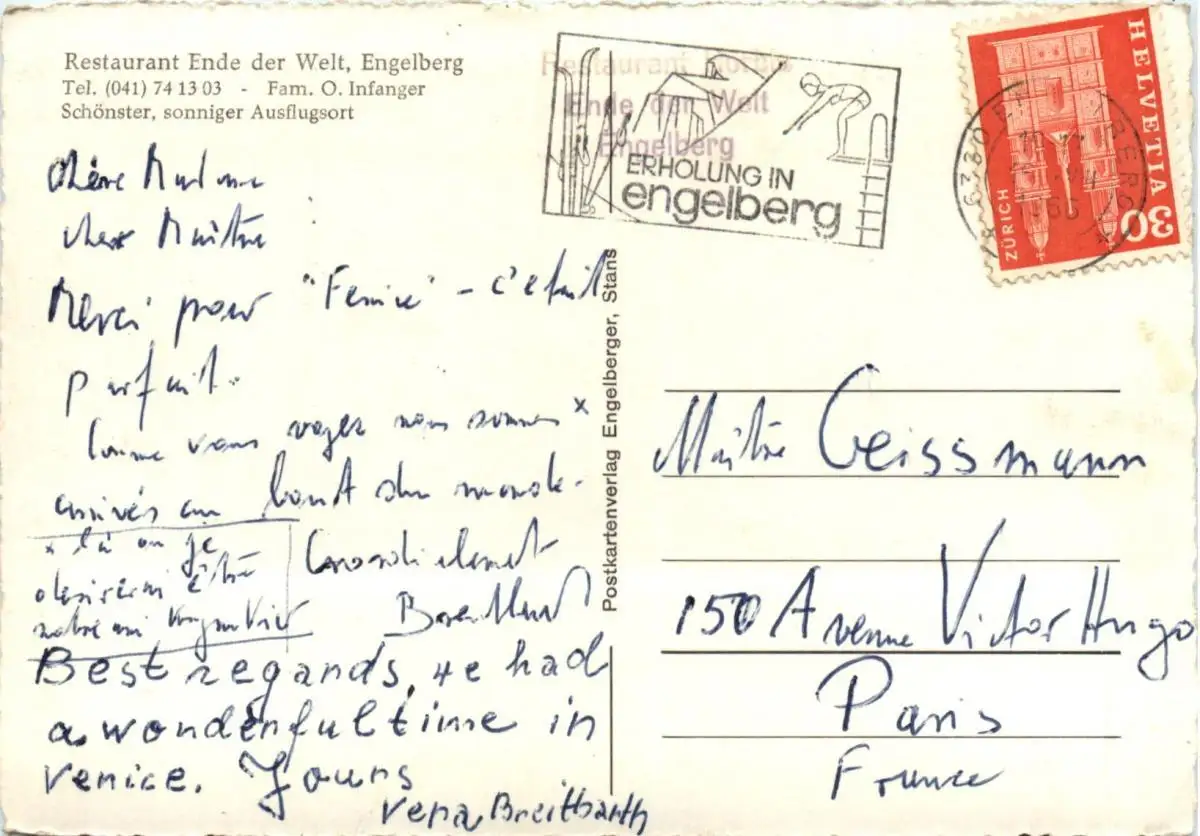 Restaurant Ende der Welt, Engelberg
Tel. (041) 74 13 03 - Fam. O. Infanger
Schönster, sonniger Ausflugsort
Restaurant
Ende der Welt
Engelberg
ERHOLUNG IN
engelberg
HELVETIA
30
ZÜRICH
6390 ENGELBERG
Chère Madame
cher Maître
Merci pour "Fenice" - c'etait
parfait.
Comme vous voyez nous sommes x
arrivés au bout du monde.
x là où je
désirerai être
notre ami
Cordialement
Best regards, we had
a wonderful time in
Venice. Yours
Vera Breitbarth
Postkartenverlag Engelberger, Stans
Maître Geissmann
150 Avenue Victor Hugo
Paris
France